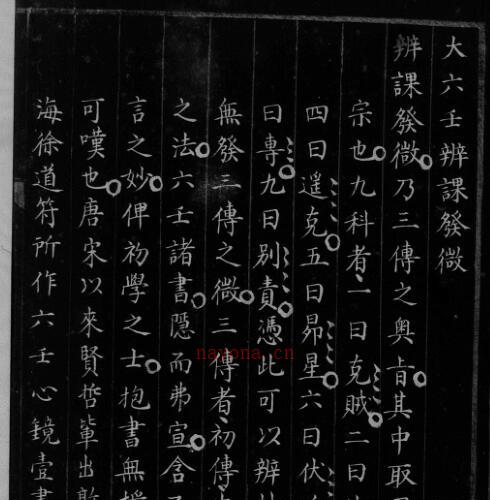 大六壬辨課發微
辨課發微乃三傳之奥旨其中取
宗也九科者一曰克賊二曰
四曰遥克五曰昴星六曰伏
曰專九曰别責憑此可以辨
無發三傳之微三傳者初傳
之法六壬諸書隱而弗宣含
言之妙俾初學之士抱書無
可嘆也唐宋以來賢哲輩出
海徐道符所作六壬心鏡壹書
nayona.cn